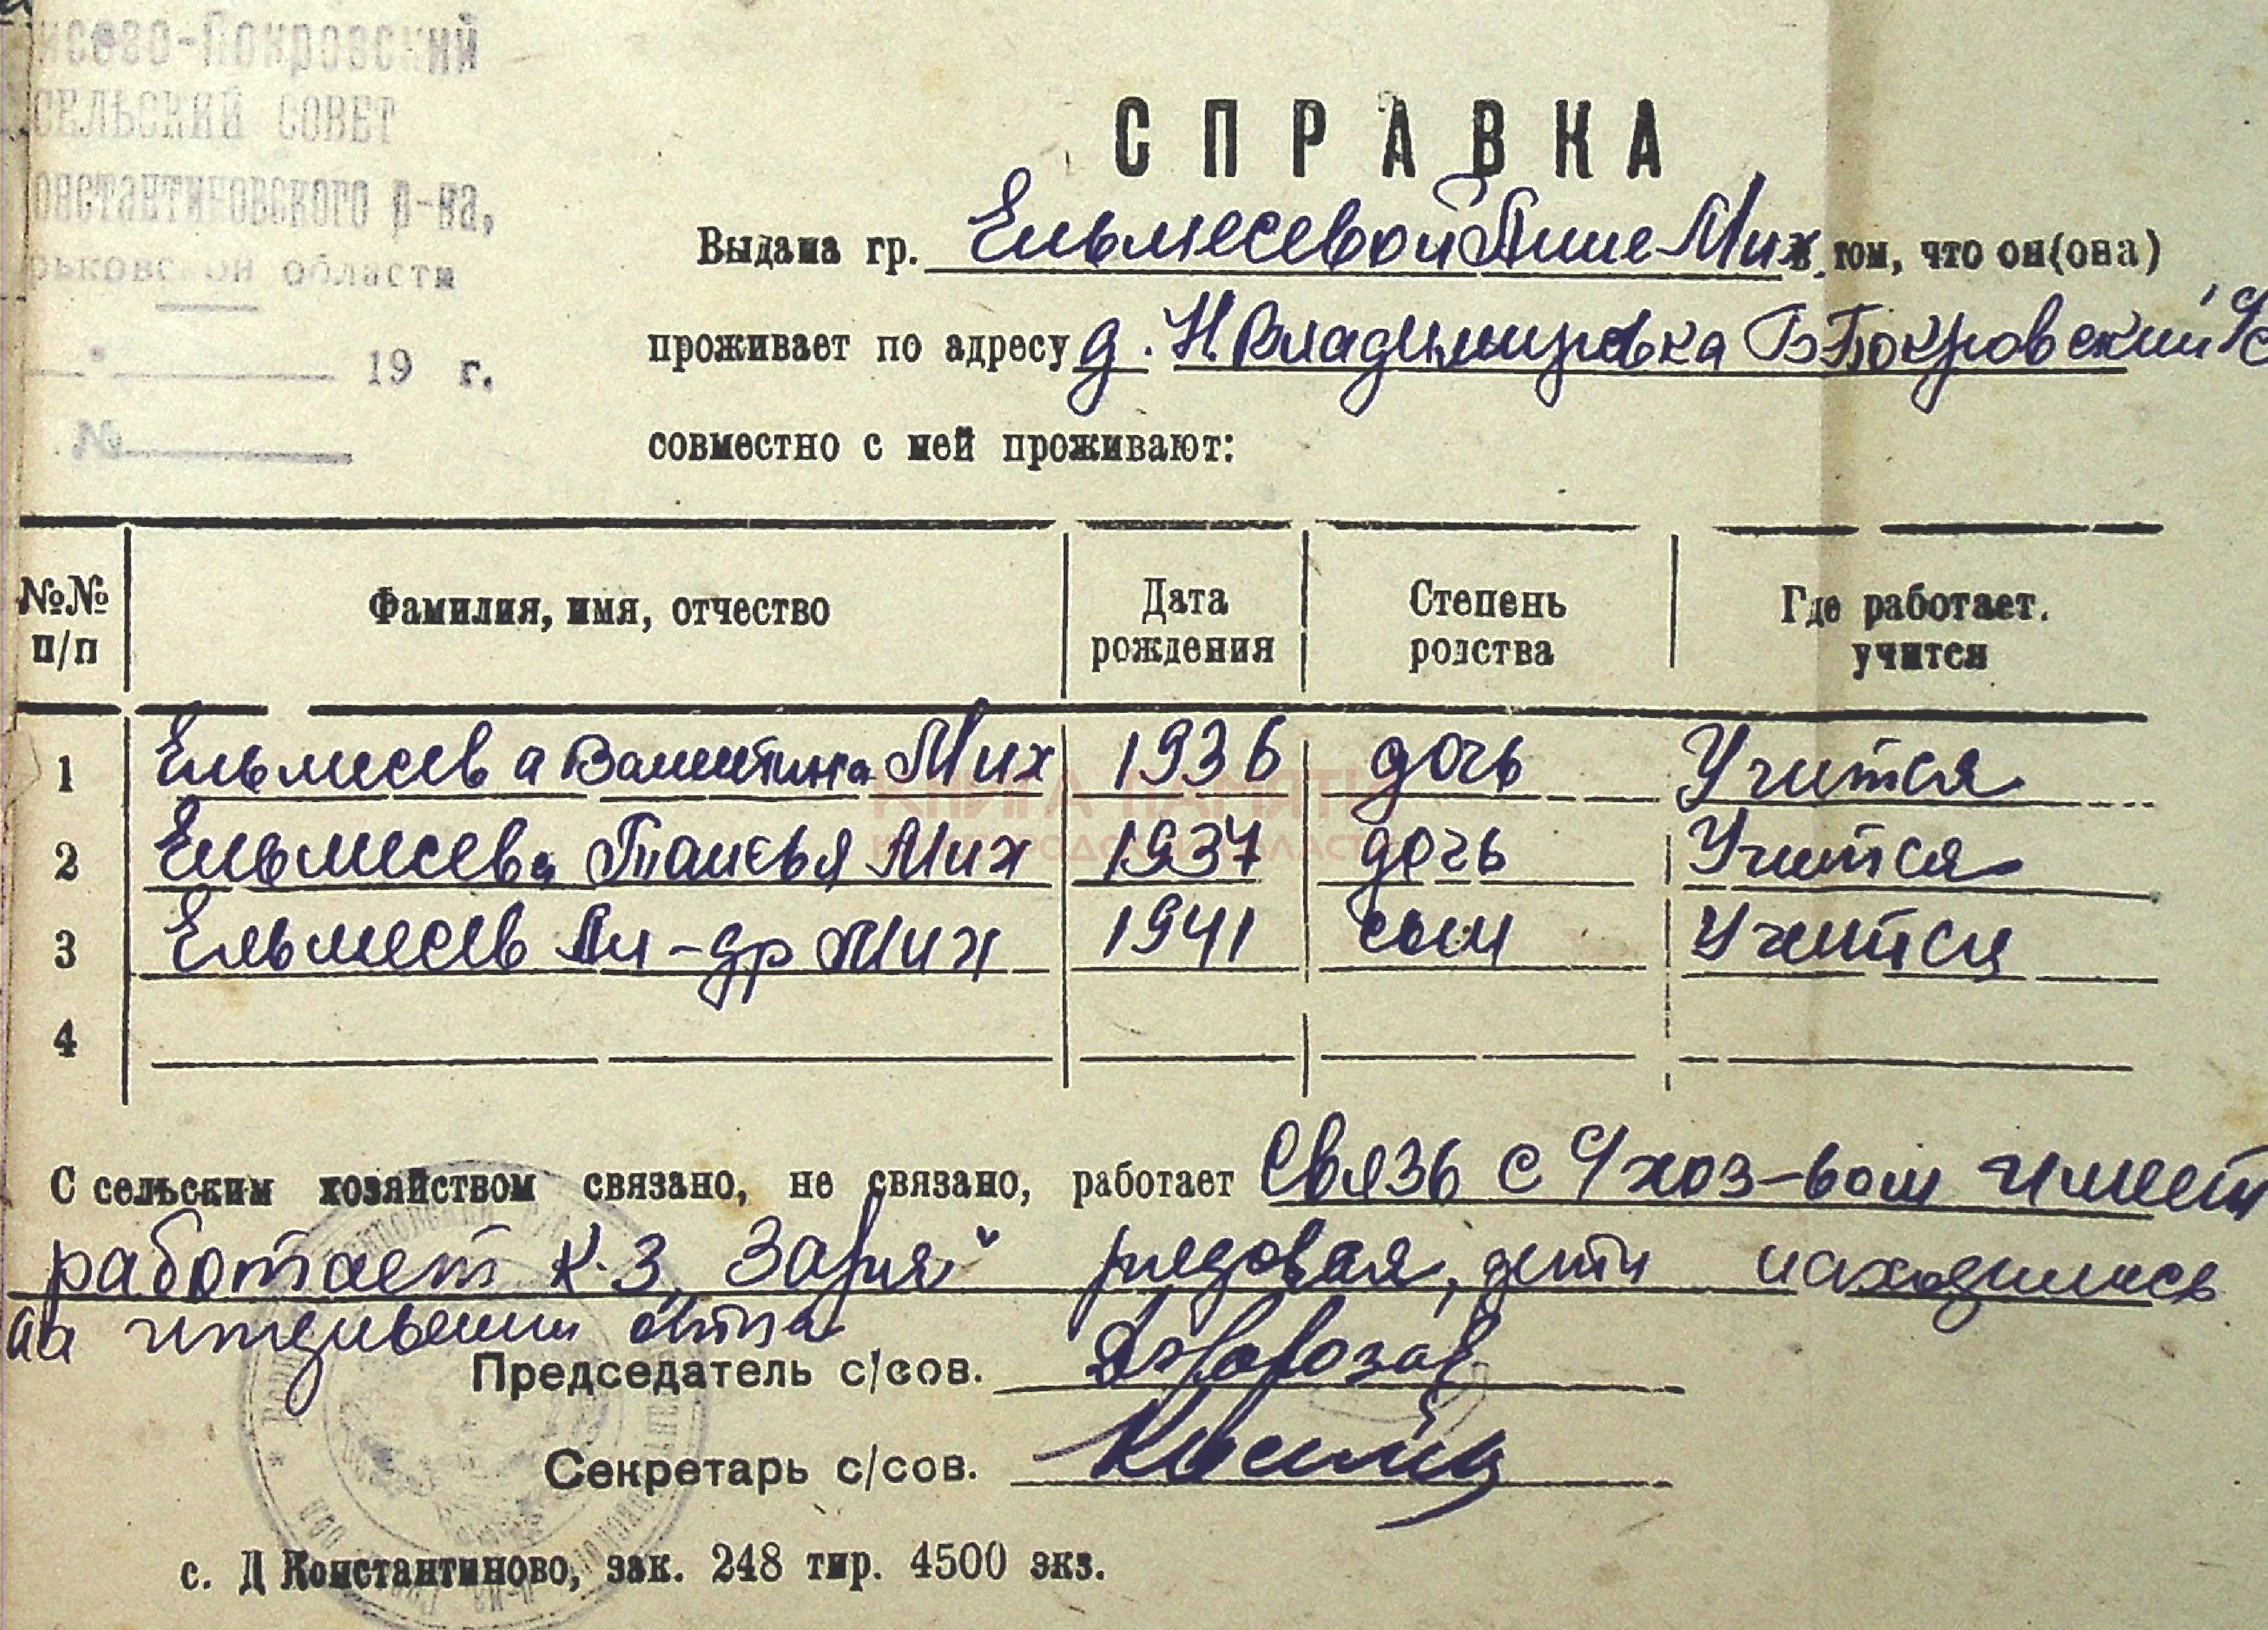 исово-Покровский
СЕЛЬСКИЙ СОВЕТ
онстантиновского р-на,
рьковской области
19 г.
№
СПРАВКА
Выдана гр. Ельмесевой Анне Мих. в том, что он(она)
проживает по адресу д. Н. Владимировка Б Покровский с/с
совместно с ней проживают:
№№ п/п Фамилия, имя, отчество Дата рождения Степень родства Где работает. учится
1 Ельмесева Валентина Мих 1936 дочь Учится
2 Ельмесева Таисья Мих 1937 дочь Учится
3 Ельмесев Ал-др Мих 1941 сын Учится
4
КНИГА ПАМЯТИ
С сельским хозяйством связано, не связано, работает Связь с с/хоз-вом имеет
работает К-З „Заря" рядовая, дети находились
на иждивении отца
Председатель с/сов.
Секретарь с/сов.
с. Д Константиново, зак. 248 тир. 4500 экз.